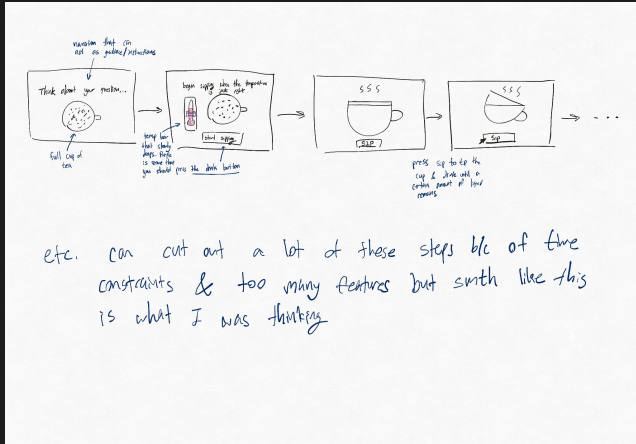 narration that can
act as guidance/instructions
Think about your question...
full cup of
tea
begin sipping when the temperature
is just right
start sipping
temp bar
that slowly
drops. Purple
is zone that
you should press the drink button
SIP
Sip
press sip to tip the
cup & drink until a
certain amount of liquid
remains
etc. can cut out a lot of these steps b/c of time
constraints & too many features but smth like this
is what I was thinking